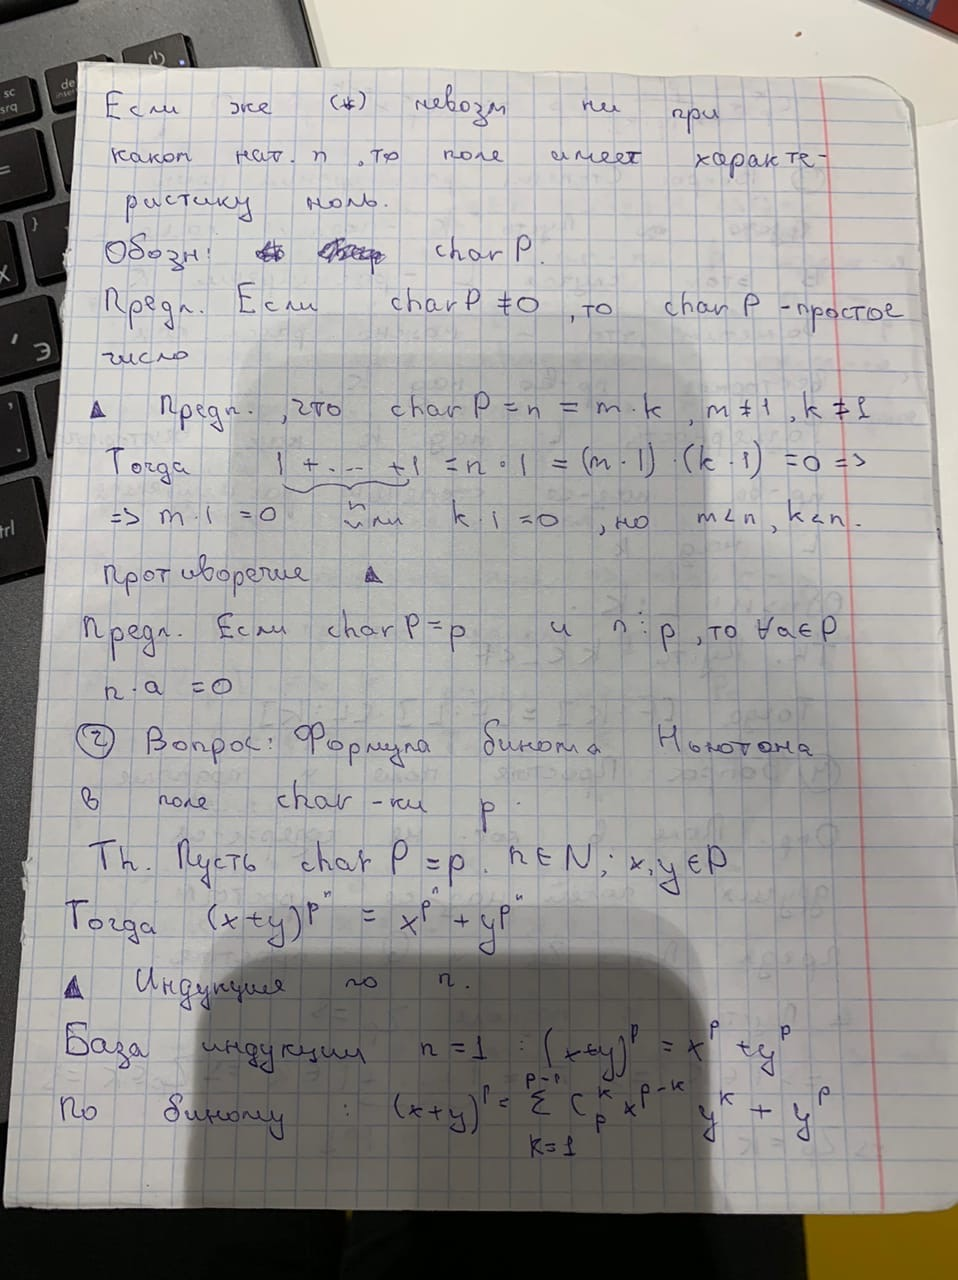 Если же (*) невозм ни при
каком нат. n, то поле имеет характе-
ристику ноль.
Обозн: char P.
Предл. Если char P ≠ 0, то char P - простое
число
▲ Предп., что char P = n = m · k, m ≠ 1, k ≠ 1
Тогда 1 + ... + 1 = n · 1 = (m · 1) · (k · 1) = 0 =>
n
=> m · 1 = 0 или k · 1 = 0, но m < n, k < n.
Противоречие ▲
Предл. Если char P = p и n ⋮ p, то ∀a ∈ P
n · a = 0
② Вопрос: Формула бинома Ньютона
в поле char-ки p.
Th. Пусть char P = p. n ∈ N; x, y ∈ P
Тогда (x+y)^{p^n} = x^{p^n} + y^{p^n}
▲ Индукция по n.
База индукции n = 1 : (x+y)^p = x^p + y^p
По биному : (x+y)^p = \sum_{k=1}^{p-1} C_p^k x^{p-k} y^k + y^p